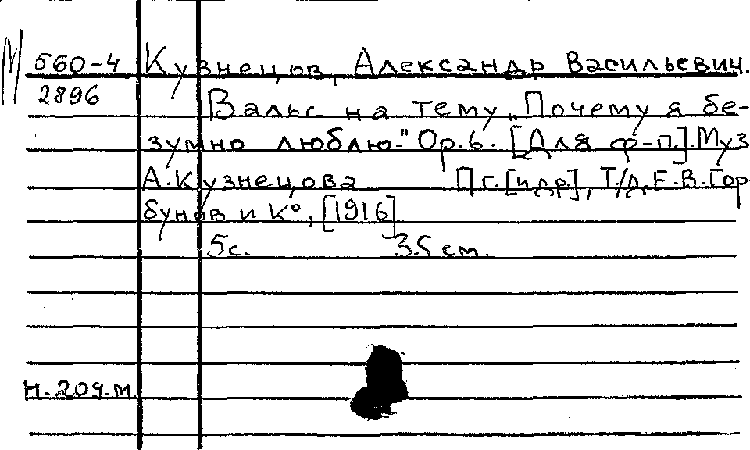 М 560-4 Кузнецов, Александр Васильевич.
2896 Вальс на тему „Почему я бе-
зумно люблю." Ор.6. [Для ф-п.]. Муз
А. Кузнецова Пг. [и др.], Т/д. Е. В. Гор
бунов и К°, [1916]
5 с. 35 см.
Н. 209. м.